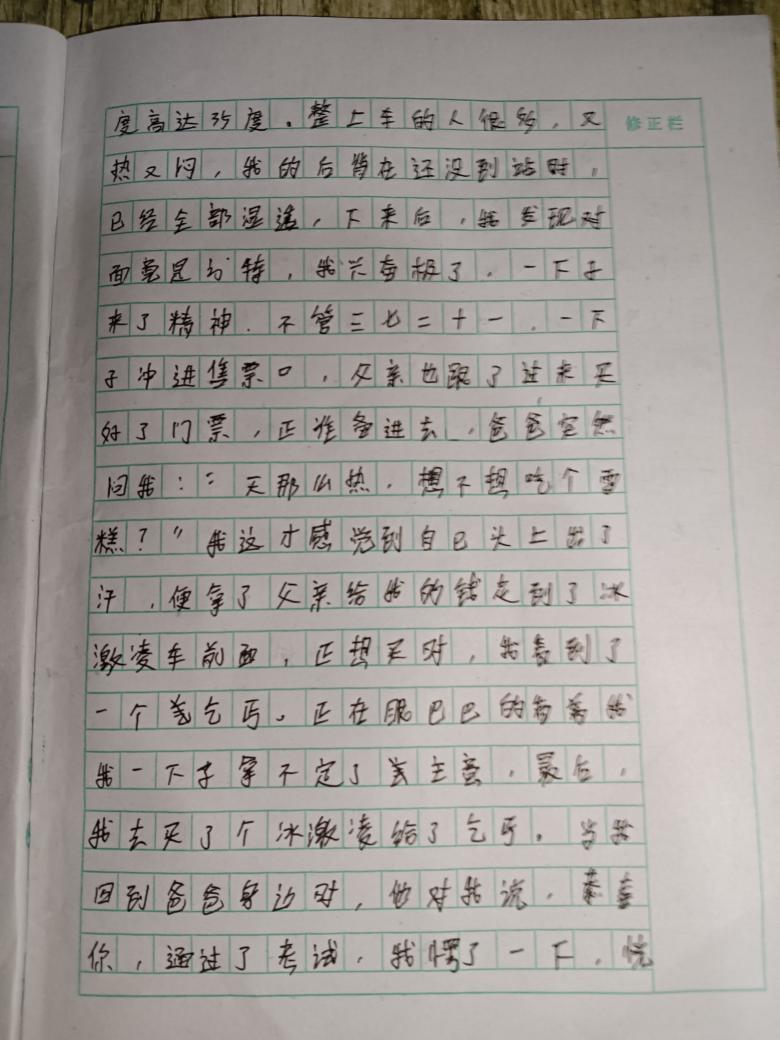 度高达35度。整上车的人很多，又
修正栏
热又闷，我的后背在还没到站时，
已经全部湿透，下来后，我发现对
面竟是方特，我兴奋极了．一下子
来了精神．不管三七二十一．一下
子冲进售票口，父亲也跟了过来买
好了门票，正准备进去，爸爸突然
问我：“天那么热．想不想吃个雪
糕？”我这才感觉到自已头上出了
汗，便拿了父亲给我的钱走到了冰
激凌车前面，正想买时，我看到了
一个乞丐。正在眼巴巴的看着我
我一下子拿不定了主意，最后，
我去买了个冰激凌给了乞丐。当我
回到爸爸身边时，他对我说．恭喜
你，通过了考试，我愣了一下．恍